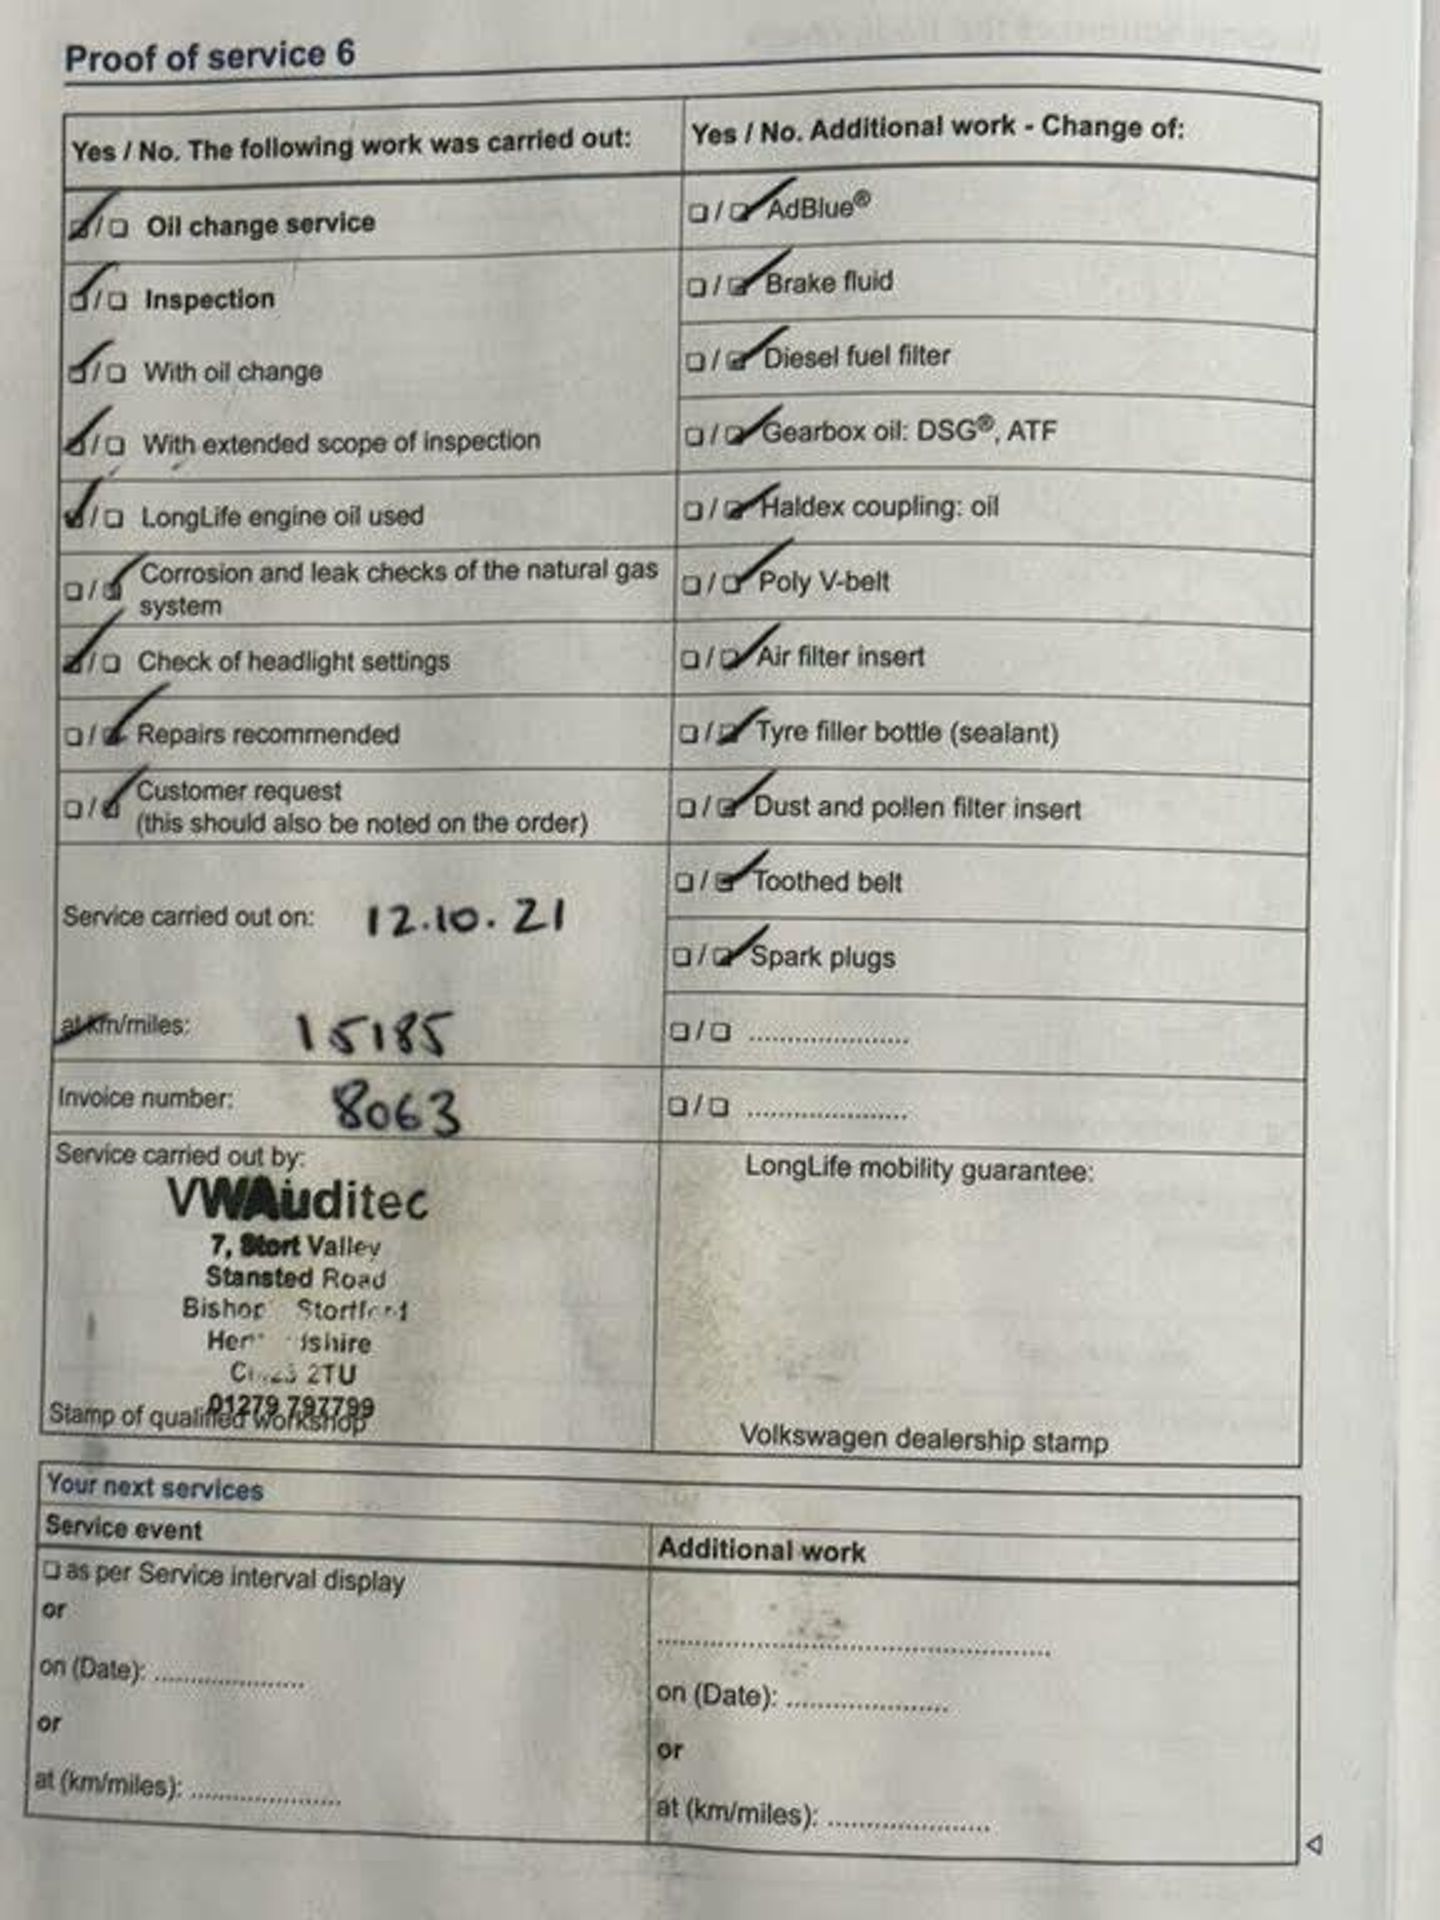 Proof of service 6
Yes / No. The following work was carried out:
Oil change service
Inspection
With oil change
With extended scope of inspection
LongLife engine oil used
Corrosion and leak checks of the natural gas
system
Check of headlight settings
Repairs recommended
Customer request
(this should also be noted on the order)
Service carried out on: 12.10.21
at km/miles: 15185
Invoice number: 8063
Service carried out by:
VWAuditec
7, Stort Valley
Stansted Road
2TU
01279 797799
Stamp of qualified workshop
Yes / No. Additional work - Change of:
AdBlue®
Brake fluid
Diesel fuel filter
Gearbox oil: DSG®, ATF
Haldex coupling: oil
Poly V-belt
Air filter insert
Tyre filler bottle (sealant)
Dust and pollen filter insert
Toothed belt
Spark plugs
LongLife mobility guarantee:
Volkswagen dealership stamp
Your next services
Service event
as per Service interval display
or
on (Date): ....................
or
at (km/miles): ....................
Additional work
on (Date): ....................
or
at (km/miles): ....................